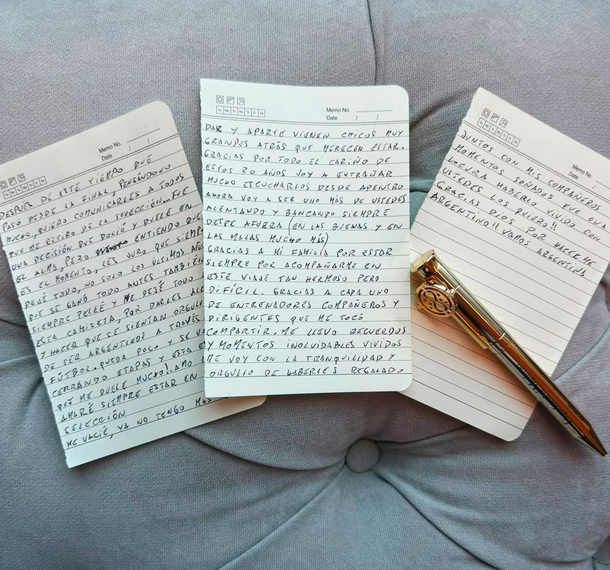 Memo No.
DESPUÉS DE ESTE TIEMPO QUE
PASÓ DESDE LA FINAL, PENSÁNDOLO
MUCHO, QUIERO COMUNICARLES A TODOS
QUE ME RETIRO DE LA SELECCIÓN. FUE
UNA DECISIÓN QUE DOLIÓ Y DUELE EN
EL ALMA, PERO ENTIENDO QUE
ES EL MOMENTO, LES JURO QUE SIEMPRE
DEJÉ TODO, NO SOLO LOS ÚLTIMOS AÑOS
QUE SE GANÓ TODO ANTES TAMBIÉN
SIEMPRE PELEÉ Y ME DEJÉ TODO
ESTA CAMISETA, POR DARLES ALE
Y HACER QUE SE SIENTAN ORGULLO
DE SER ARGENTINOS A TRAVÉS
FÚTBOL. QUEDA POCO, Y SE VA
CERRANDO ETAPAS Y ESTA ES
QUE ME DUELE MUCHO!. AMO
AMARÉ SIEMPRE ESTAR EN
SELECCIÓN
ME VACIÉ, YA NO TENGO MÁS
Memo No.
DAR Y APARTE VIENEN CHICOS MUY
GRANDES ATRÁS QUE MERECEN ESTAR.
GRACIAS POR TODO EL CARIÑO DE
ESTOS 20 AÑOS VOY A EXTRAÑAR
MUCHO ESCUCHARLOS DESDE ADENTRO.
AHORA VOY A SER UNO MÁS DE USTEDES
ALENTANDO Y BANCANDO SIEMPRE
DESDE AFUERA (EN LAS BUENAS Y EN
LAS MALAS MUCHO MÁS)
GRACIAS A MI FAMILIA POR ESTAR
SIEMPRE POR ACOMPAÑARME EN
ESTE VIAJE TAN HERMOSO PERO
DIFÍCIL. GRACIAS A CADA UNO
DE ENTRENADORES COMPAÑEROS Y
DIRIGENTES QUE ME TOCÓ
COMPARTIR. ME LLEVO RECUERDOS
Y MOMENTOS INOLVIDABLES VIVIDOS
ME VOY CON LA TRANQUILIDAD Y
ORGULLO DE HABERLES REGALADO
Memo No.
JUNTOS CON MIS COMPAÑEROS
MOMENTOS SOÑADOS FUE UNA
LOCURA HABERLO VIVIDO CON
USTEDES LOS QUIERO!!
GRACIAS DIOS POR HACERME
ARGENTINO!! VAMOS ARGENTINA